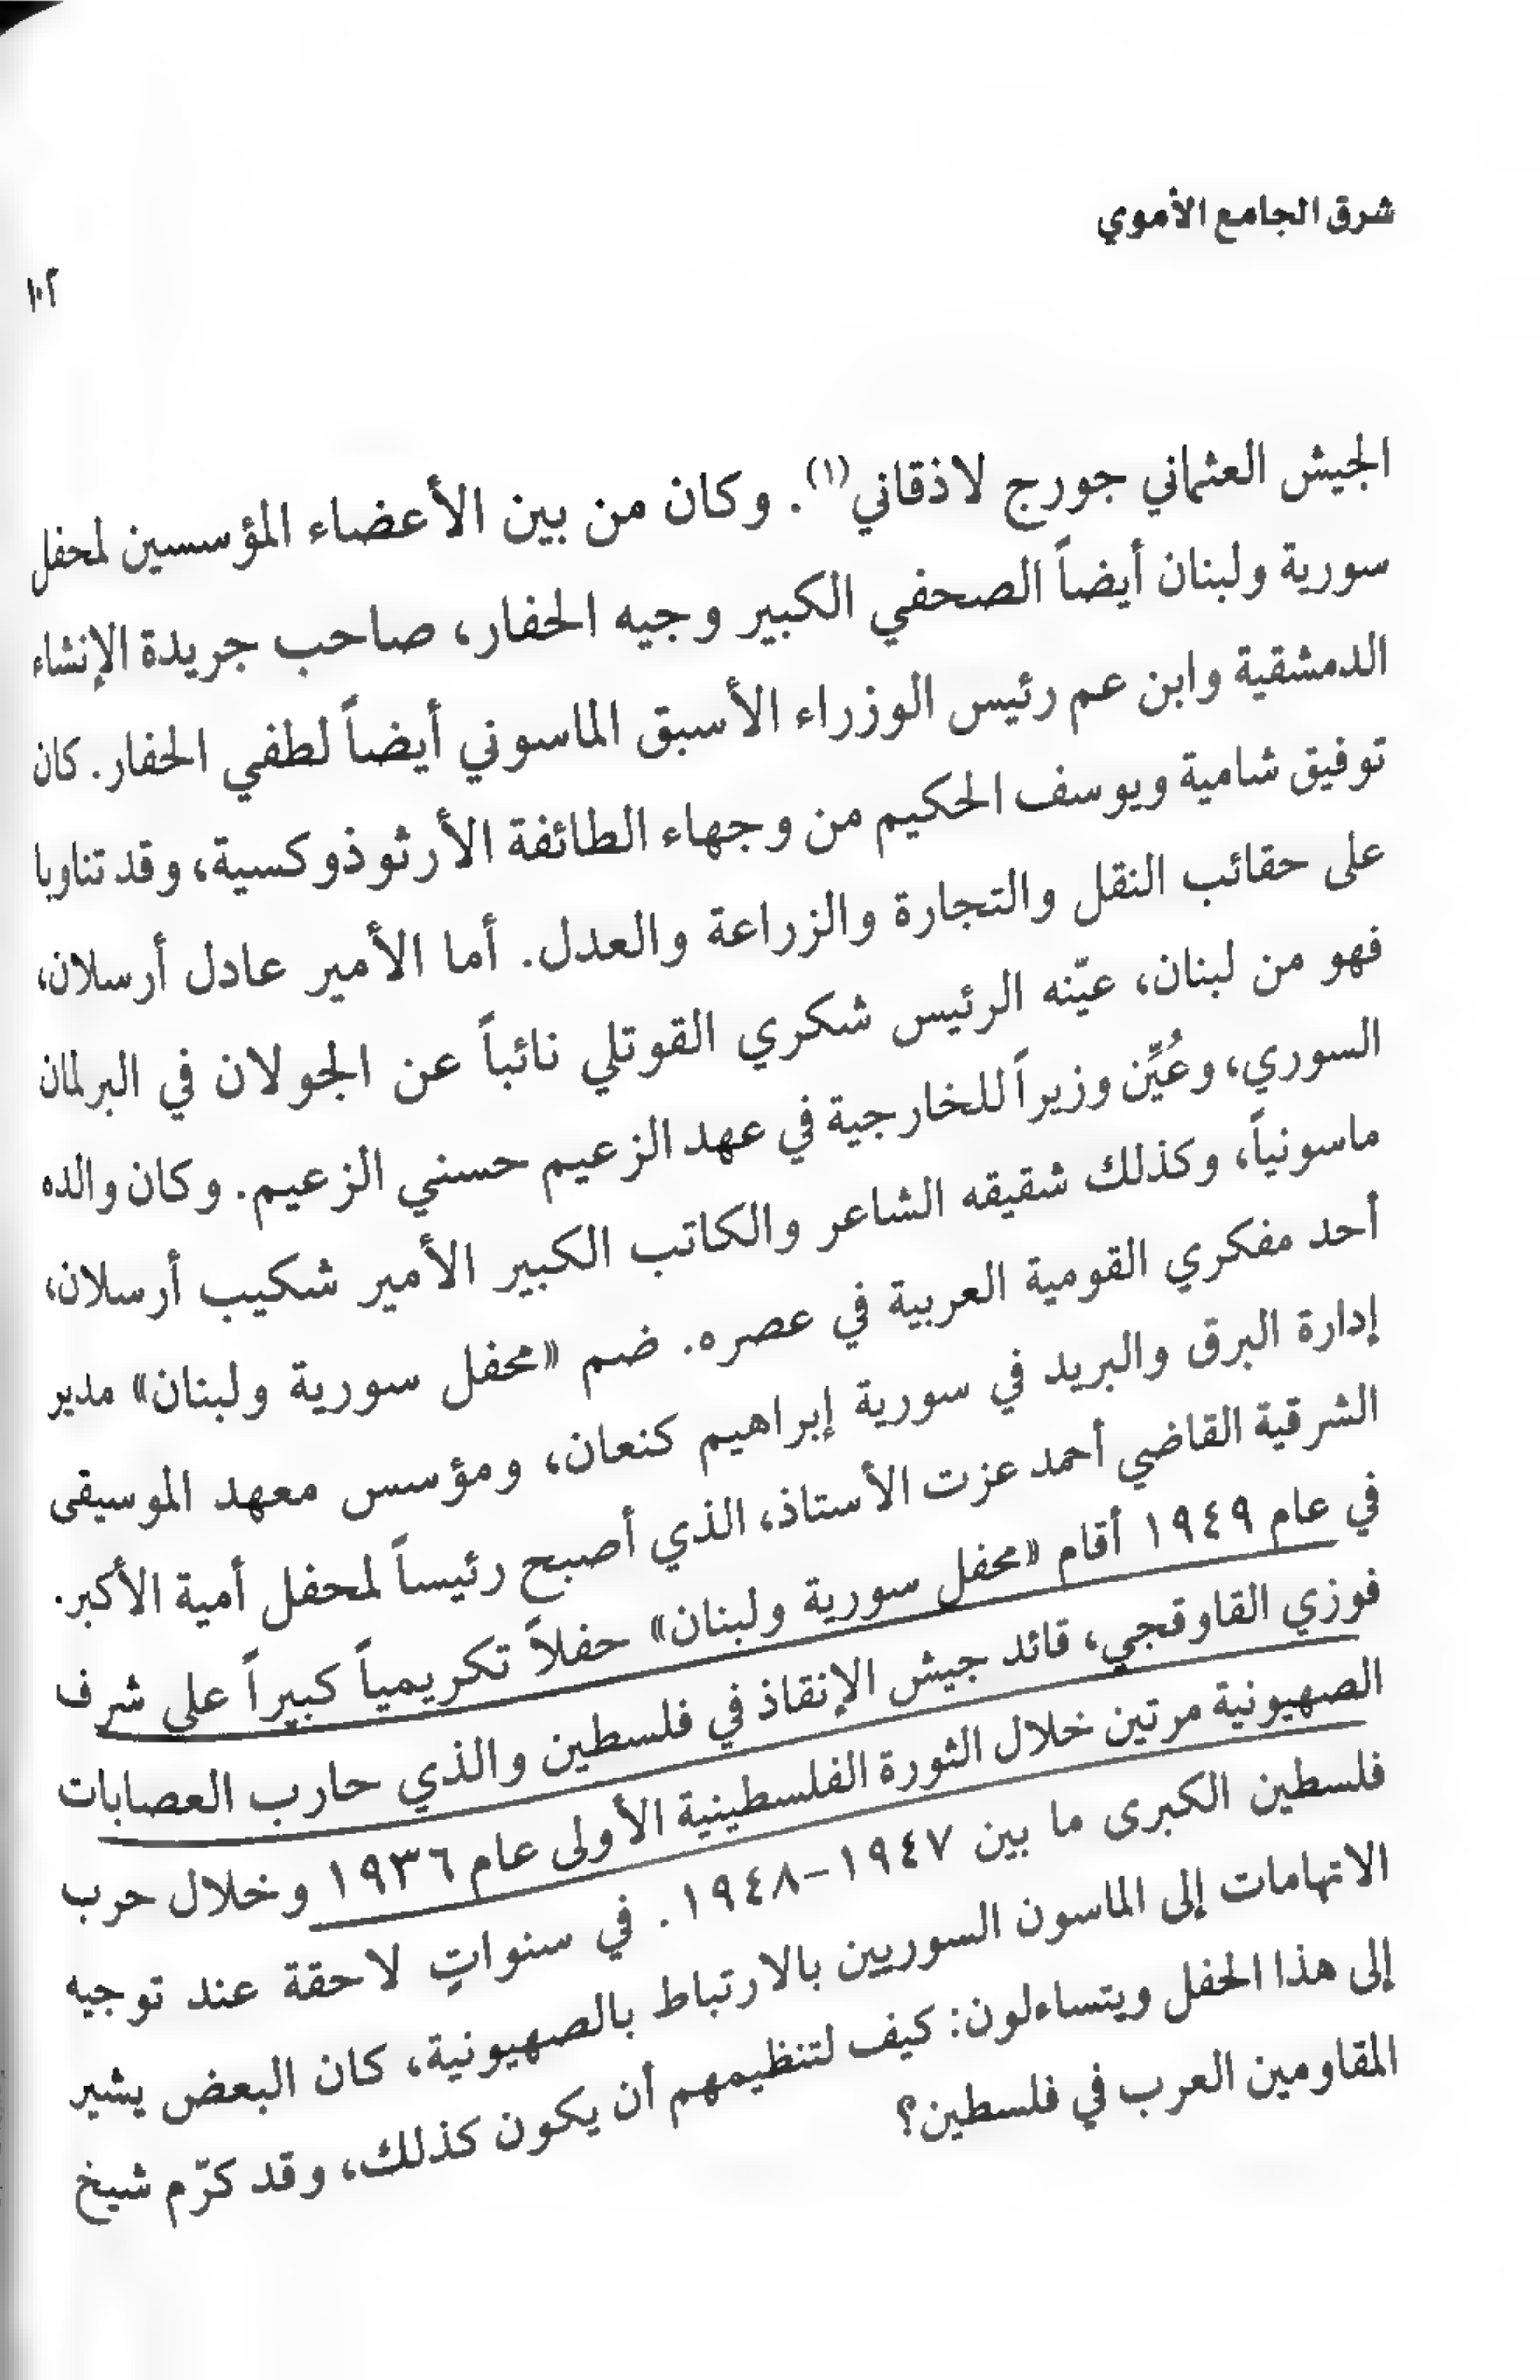 شرق الجامع الأموي
١٠٢
الجيش العثماني جورج لاذقاني(١). وكان من بين الأعضاء المؤسسين لمحفل
سورية ولبنان أيضاً الصحفي الكبير وجيه الحفار، صاحب جريدة الإنشاء
الدمشقية وابن عم رئيس الوزراء الأسبق الماسوني أيضاً لطفي الحفار. كان
توفيق شامية ويوسف الحكيم من وجهاء الطائفة الأرثوذوكسية، وقد تناوبا
على حقائب النقل والتجارة والزراعة والعدل. أما الأمير عادل أرسلان،
فهو من لبنان، عيّنه الرئيس شكري القوتلي نائباً عن الجولان في البرلمان
السوري، وعُيِّن وزيراً للخارجية في عهد الزعيم حسني الزعيم. وكان والده
ماسونياً، وكذلك شقيقه الشاعر والكاتب الكبير الأمير شكيب أرسلان،
أحد مفكري القومية العربية في عصره. ضم «محفل سورية ولبنان» مدير
إدارة البرق والبريد في سورية إبراهيم كنعان، ومؤسس معهد الموسيقى
الشرقية القاضي أحمد عزت الأستاذ، الذي أصبح رئيساً لمحفل أمية الأكبر.
في عام ١٩٤٩ أقام «محفل سورية ولبنان» حفلاً تكريمياً كبيراً على شرف
فوزي القاوقجي، قائد جيش الإنقاذ في فلسطين والذي حارب العصابات
الصهيونية مرتين خلال الثورة الفلسطينية الأولى عام ١٩٣٦ وخلال حرب
فلسطين الكبرى ما بين ١٩٤٧-١٩٤٨. في سنواتٍ لاحقة عند توجيه
الاتهامات إلى الماسون السوريين بالارتباط بالصهيونية، كان البعض يشير
إلى هذا الحفل ويتساءلون: كيف لتنظيمهم أن يكون كذلك، وقد كرّم شيخ
المقاومين العرب في فلسطين؟